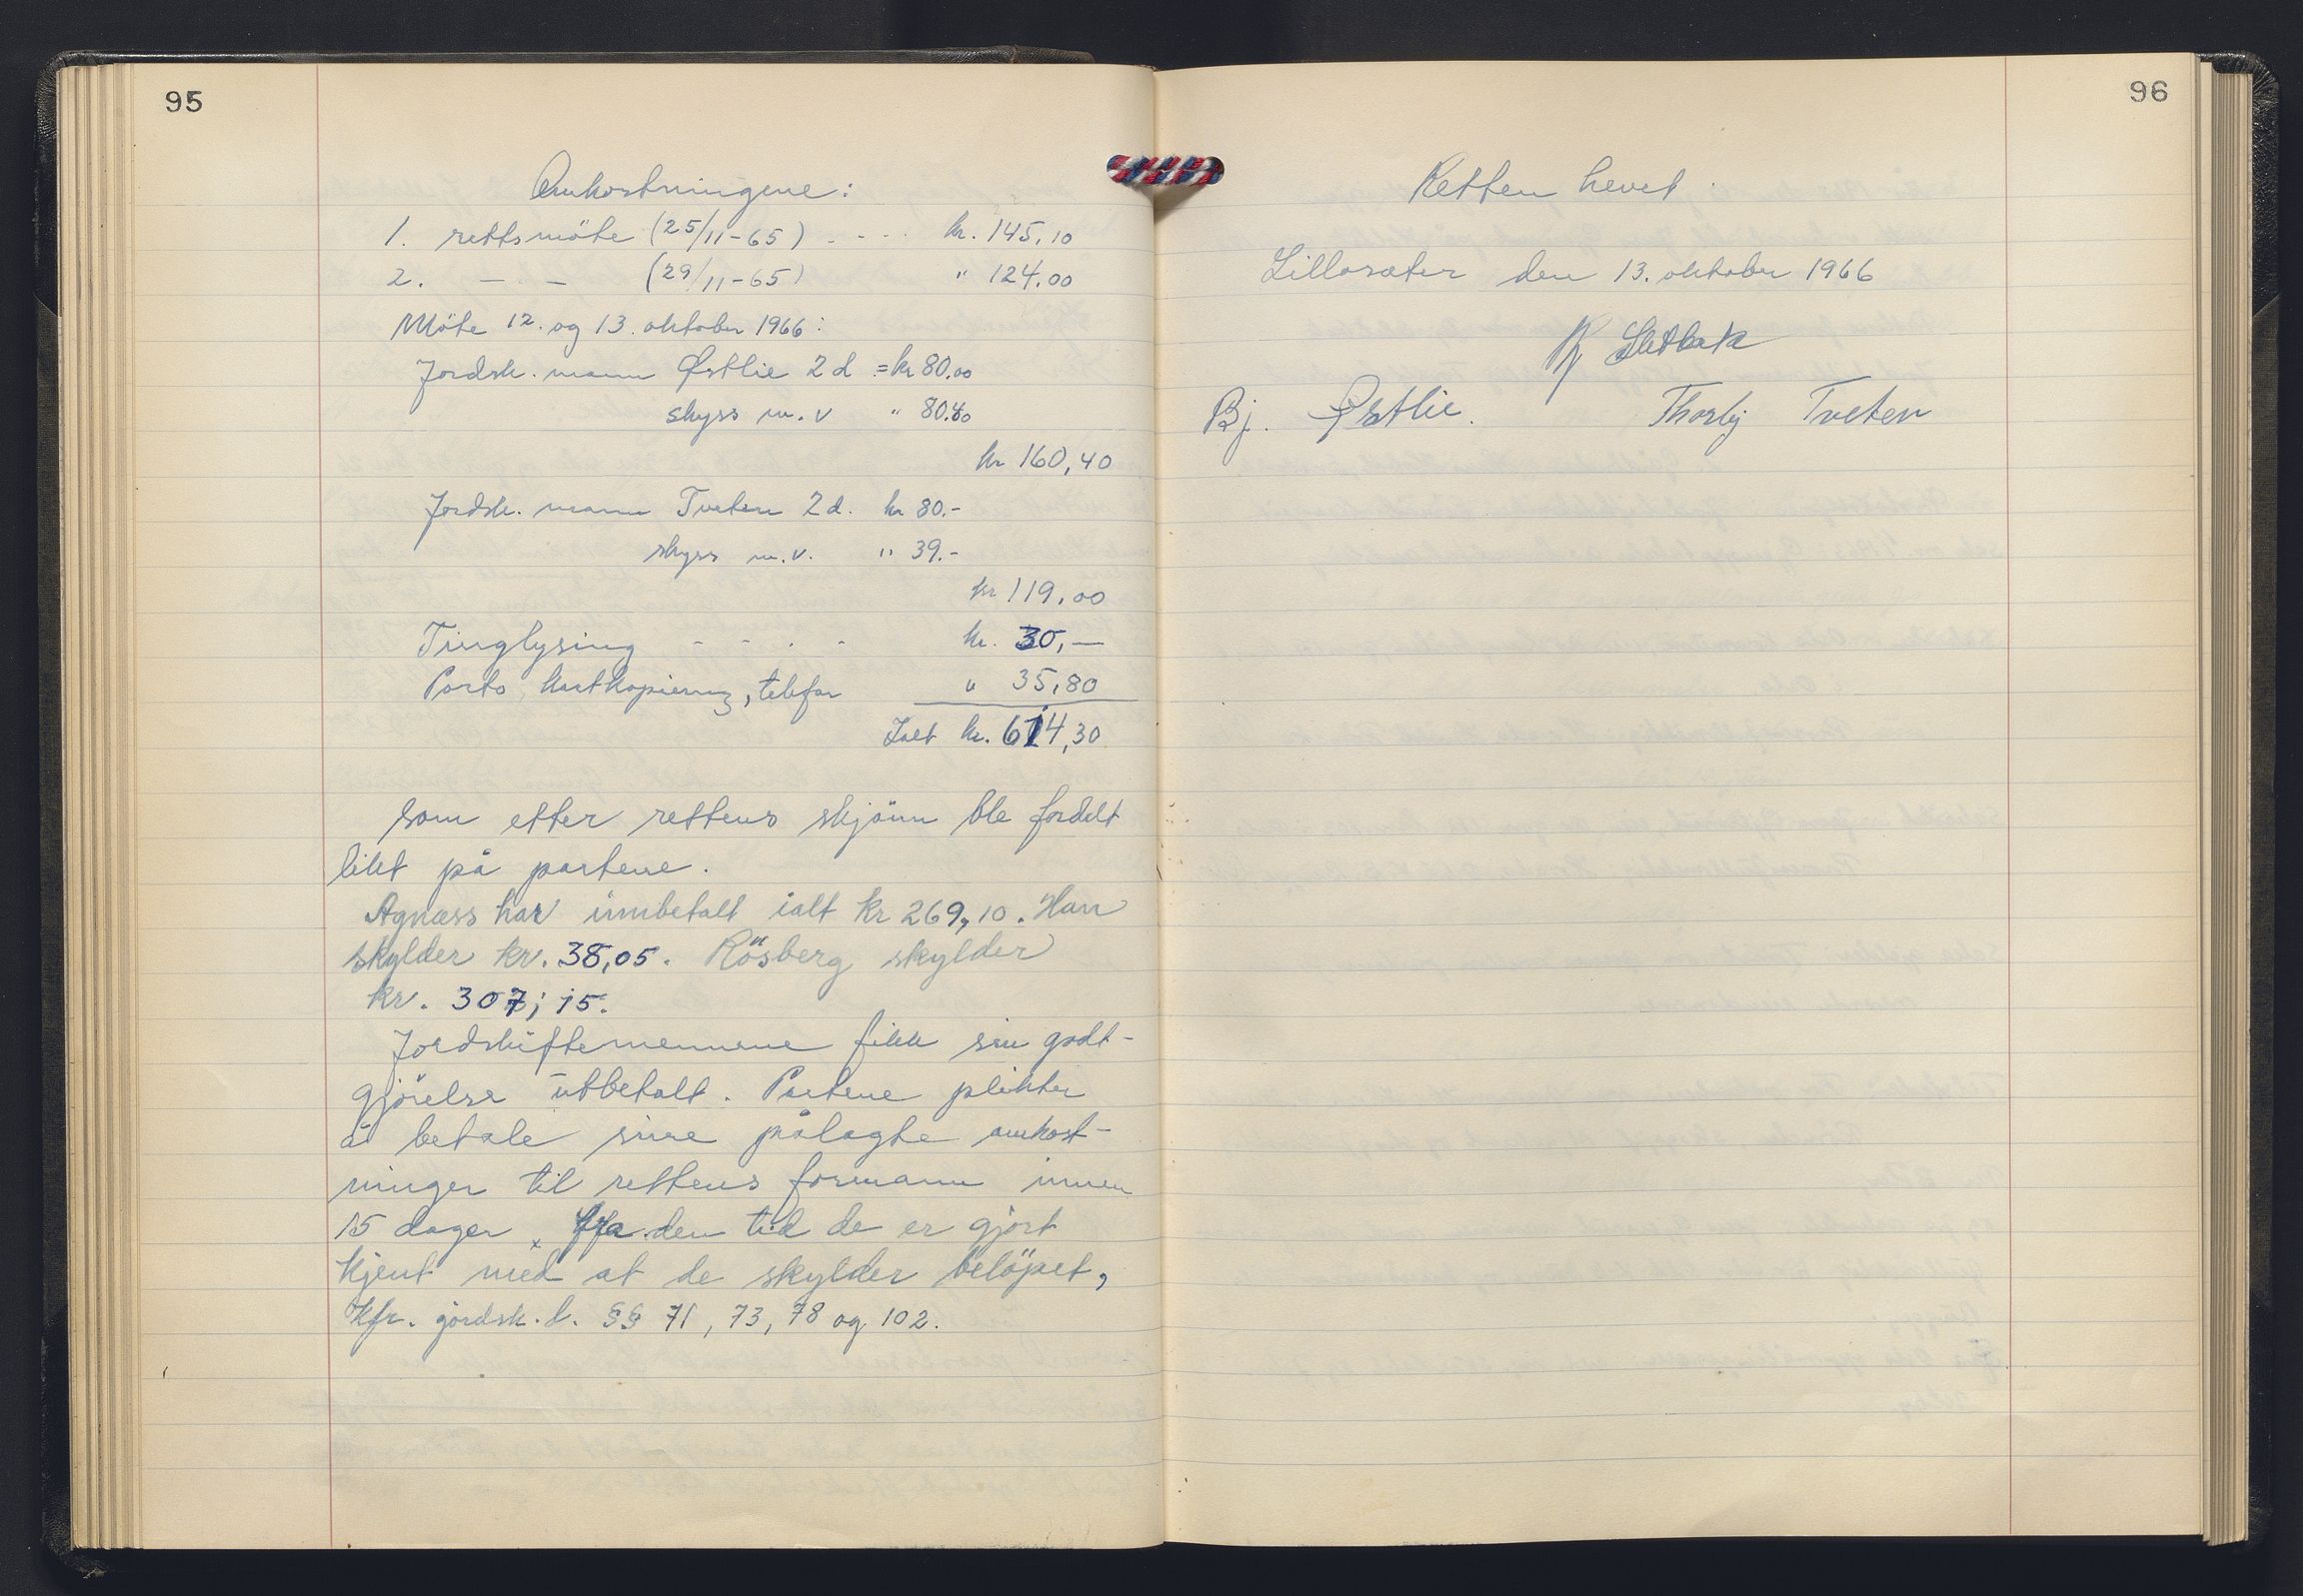 95
Omkostningene:
1. rettsmöte (25/11-65) - - - - kr. 145,10
2. — - — (29/11-65) " 124,00
Möte 12. og 13. oktober 1966:
Jordsk. mann Østlie 2 d = kr 80,00
skyss m. v " 80.40
kr 160,40
Jordsk. mann Tveten 2 d. kr 80.-
skyss m. v. " 39.-
kr 119,00
Tinglysing - - . - kr. 30,—
Porto, kartkopiering, telefon " 35,80
Ialt kr. 614,30
som etter rettens skjönn ble fordelt
likt på partene.
Agnæss har innbetalt ialt kr 269,10. Han
skylder kr. 38,05. Rösberg skylder
kr. 307,15.
Jordskiftemennene fikk sin godt-
gjörelse utbetalt. Partene plikter
å betale sine pålagte omkost-
ninger til rettens formann innen
15 dager fra den tid de er gjort
kjent med at de skylder belöpet,
kfr. jordsk. l. §§ 71, 73, 78 og 102.
96
Retten hevet.
Lillosæter den 13. oktober 1966
Bj. Østlie. Tveten